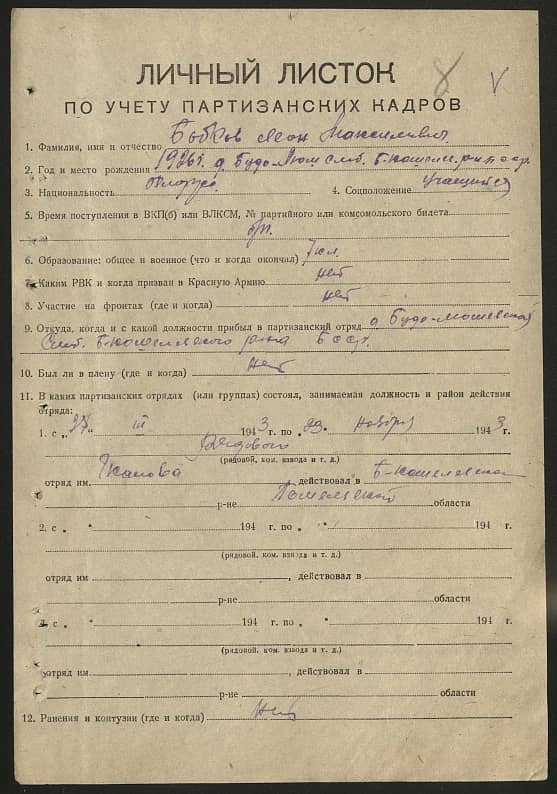 8 V
ЛИЧНЫЙ ЛИСТОК
ПО УЧЕТУ ПАРТИЗАНСКИХ КАДРОВ
1. Фамилия, имя и отчество Бобков Леон Максимович
2. Год и место рождения 1926 г. д. Будо-Люшевская Б-Кошелевск. р-на БССР.
3. Национальность белорус 4. Соцположение учащийся
5. Время поступления в ВКП(б) или ВЛКСМ, № партийного или комсомольского билета
б/п.
6. Образование: общее и военное (что и когда окончил) 7 кл.
7. Каким РВК и когда призван в Красную Армию нет
8. Участие на фронтах (где и когда) нет
9. Откуда, когда и с какой должности прибыл в партизанский отряд д. Будо-Люшевская
Б-Кошелевского р-на БССР.
10. Был ли в плену (где и когда) Нет
11. В каких партизанских отрядах (или группах) состоял, занимаемая должность и район действия
отряда:
1. с „ “ III 1943 г. по 29 ноября 1943 г.
Рядовой
(рядовой, ком. взвода и т. д.)
отряд им. Чкалова, действовал в Б-Кошелевском
р-не Гомельской области
2. с „ “ 194 г. по „ “ 194 г.
(рядовой, ком. взвода и т. д.)
отряд им , действовал в
р-не области
3. с „ “ 194 г. по „ “ 194 г.
(рядовой, ком. взвода и т. д.)
отряд им , действовал в
р-не области
12. Ранения и контузии (где и когда) Нет